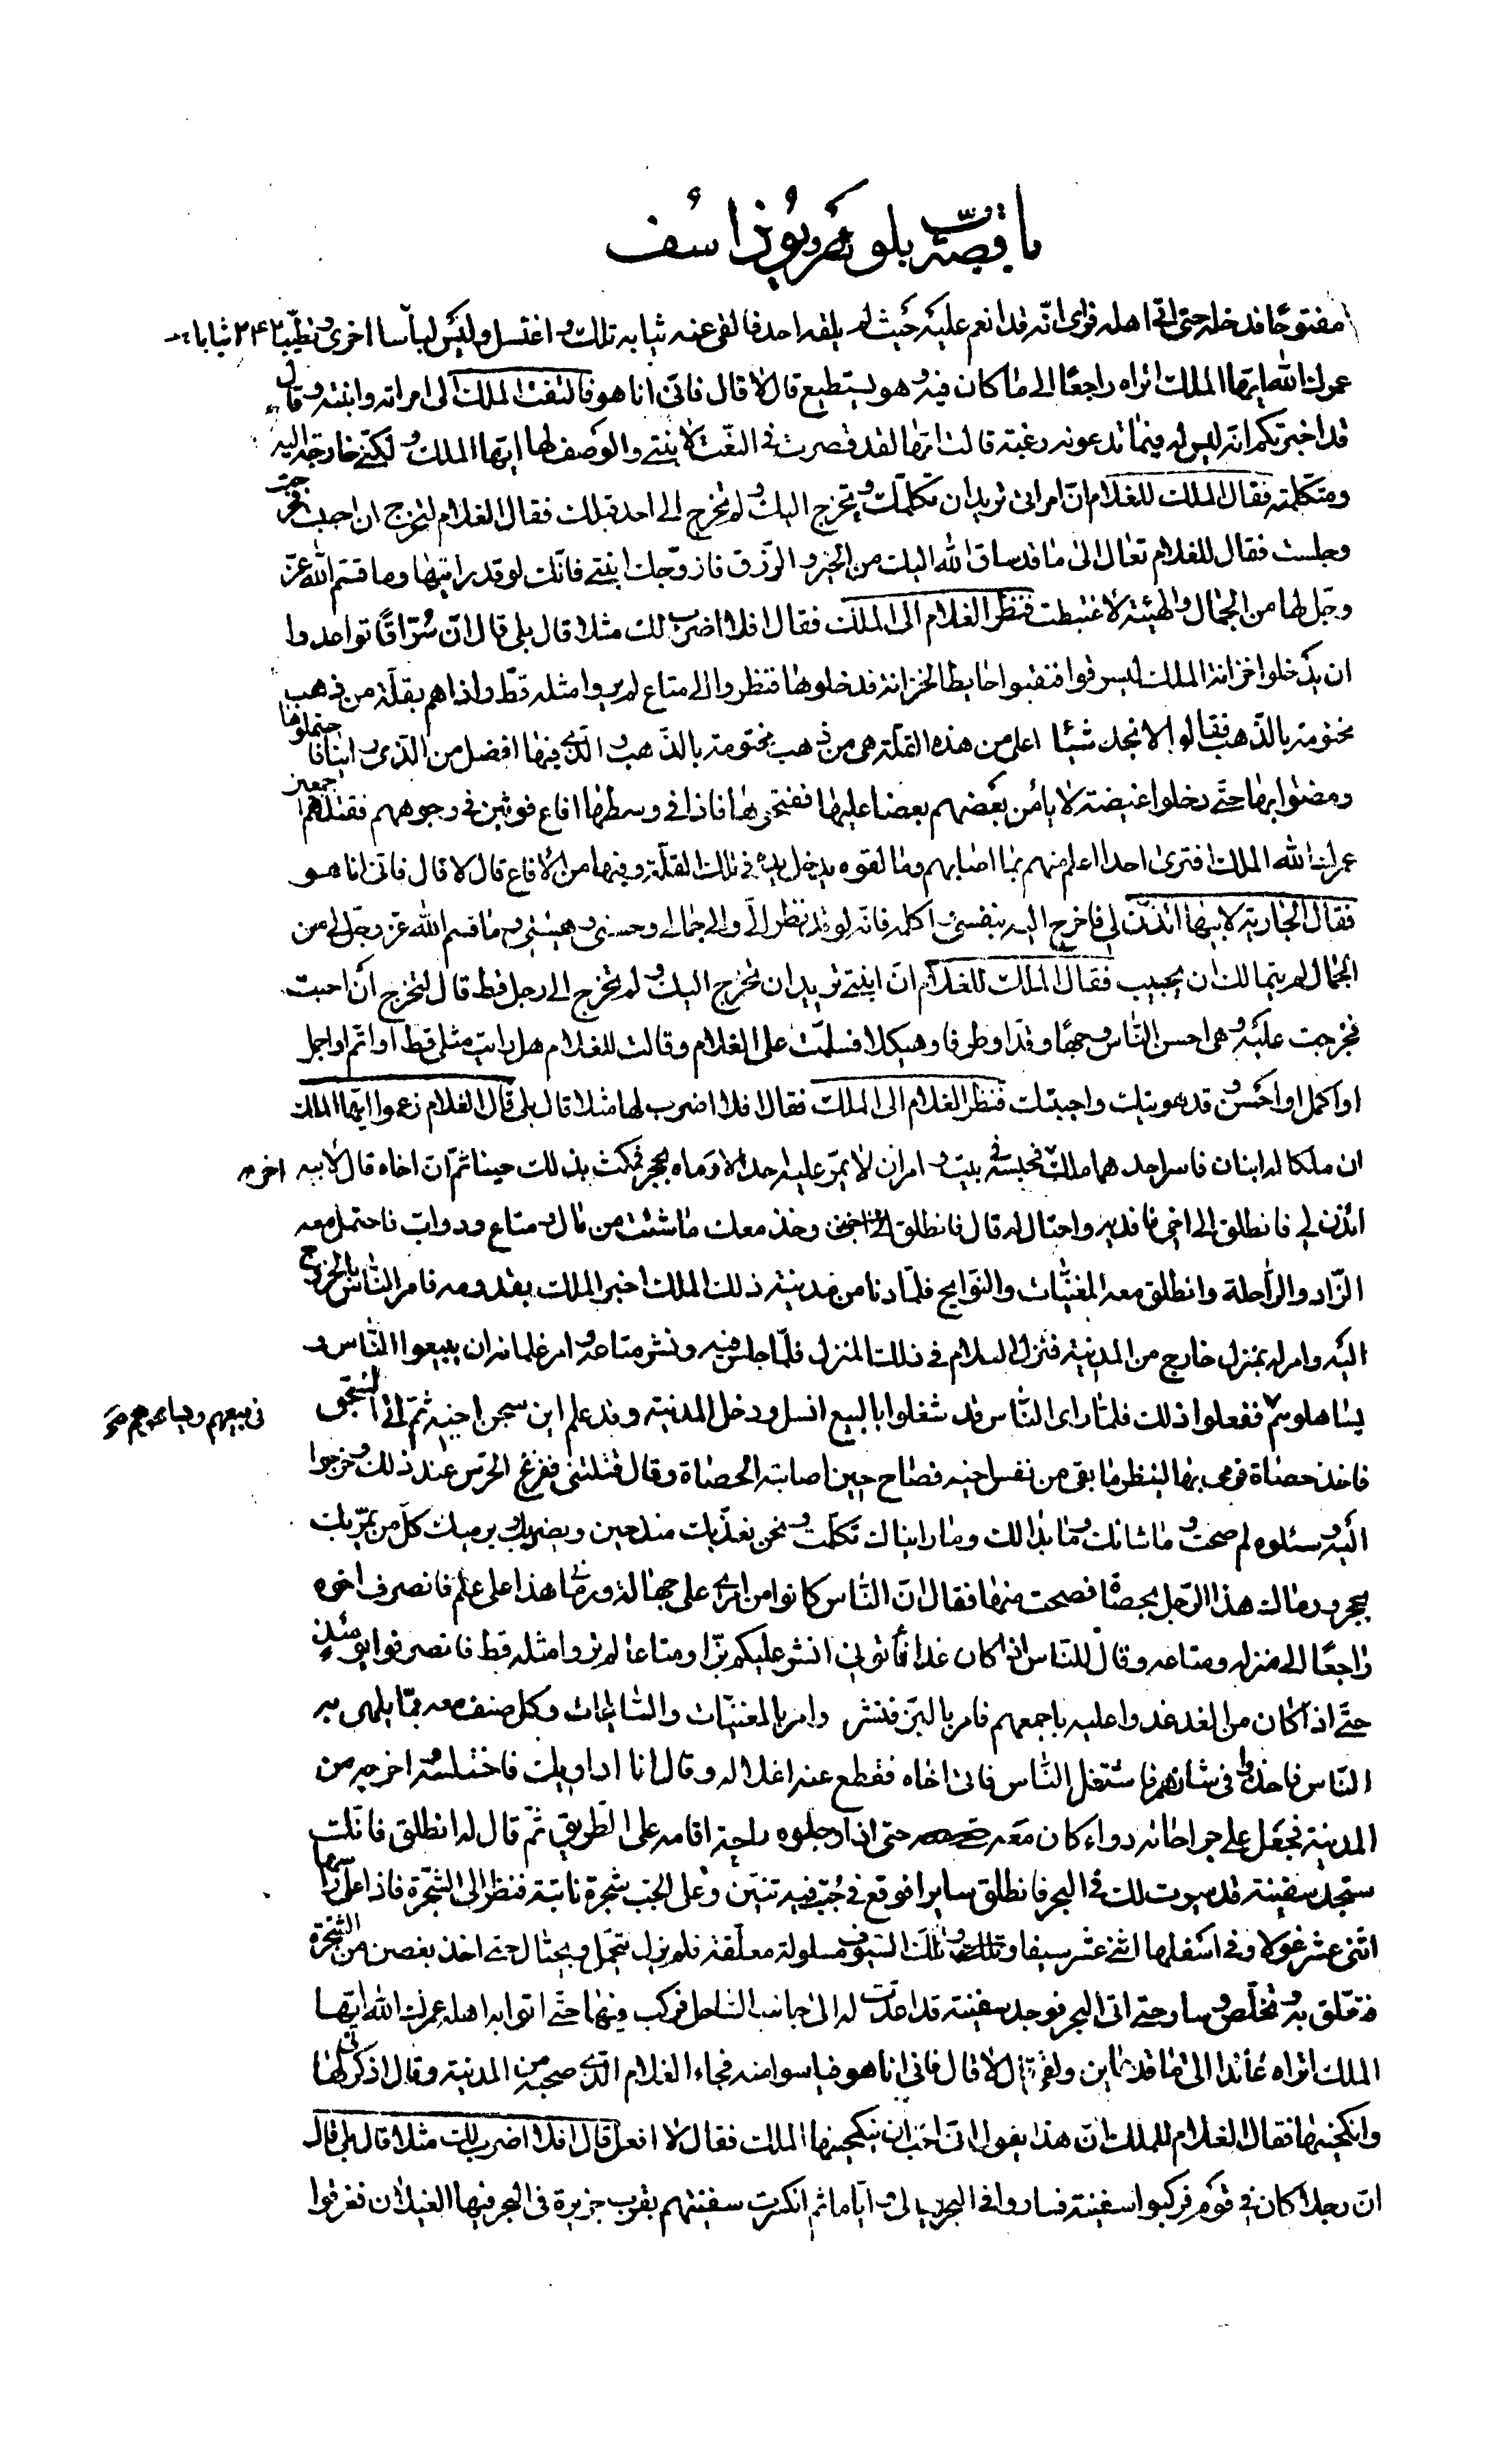 باقی قصّة بلوهر و یوذاسف
مفتوحًا فدخله حتى اتى اهله فراى انّه قد انعم عليه حيث لم يلقه احد فالقى عنه ثيابه تلك و اغتسل و لبس لباسا اخرى و تطيّب ٢٤٢ ثيابا
عمرك الله ايّها الملك اتراه راجعًا الى ما كان فيه و هو يستطيع قال لا قال فانّى انا هو فالتفت الملك الى امراته و ابنته و قال
قد اخبرتكم انّه ليس له فيما تدعونه رغبة قالت امّها لقد قصرت فى النّعت لابنتى و الوصف لها ايّها الملك و لكنّى خارجة اليه
و متكلّمته فقال الملك للغلام انّ امراتى تريد ان تكلّمك و تخرج اليك و لم تخرج الى احد قبلك فقال الغلام لتخرج ان احبّت فخرجت
و جلست فقال للغلام تعال الى ما قد ساق الله اليك من الخير و الرّزق فازوّجك ابنتى فانّك لو قد رايتها و ما قسم الله عزّ
و جلّ لها من الجمال و الهيئة لاغتبطت فنظر الغلام الى الملك فقال افلا اضرب لك مثلا قال بلى قال انّ سُرّاقًا تواعدوا
ان يدخلوا خزانة الملك ليسرقوا فنقبوا حايط الخزانة فدخلوها فنظروا الى متاع لم يروا مثله قطّ و اذا هم بقلّة من ذهب
مختومة بالذّهب فقالوا لا نجد شيئا اعلى من هذه القلّة هى من ذهب مختومة بالذّهب و الّذى فيها افضل من الّذى راينا فاحتملوها
و مضوا بها حتّى دخلوا غيضة لا يأمن بعضهم بعضا عليها ففتحوها فاذا فى وسطها افاع فوثبن فى وجوههم فقتلهم اجمعين
عمرك الله الملك افترى احدا اعلم منهم بما اصابهم و ما لقوه يدخل يده فى تلك القلّة و فيها من الافاع قال لا قال فانّى انا هو
فقال الجارية لابيها ائذن لى فاخرج اليه بنفسى و اكلمه فانّه لو قد نظر الىّ و الى جمالى و حسنى و هيئتى و ما قسم الله عزّ و جلّ لى من
الجمال لم يتمالك ان يجيب فقال الملك للغلام انّ ابنتى تريد ان تخرج اليك و لم تخرج الى رجل قط قال لتخرج ان احبت
فخرجت عليه و هى احسن النّاس وجهًا و قدّا و طرفا و هيكلا فسلّمت على الغلام و قالت للغلام هل رايت مثلى قط او اتمّ او اجمل
او اكمل او احسن و قد هويتك و احببتك فنظر الغلام الى الملك فقال افلا اضرب لها مثلا قال بلى قال الغلام زعموا ايّها الملك
ان ملكا له ابنان فاسر احدهما ملك فحبسه فى بيت و امر ان لا يمرّ عليه احد الا رماه بحجر فمكث بذلك حينا ثمّ انّ اخاه قال لابيه اخر
ائذن لى فانطلق الى اخى فافديه و احتال له قال فانطلق و خذ معك ما شئت من مال و متاع و دوابّ فاحتمل معه
الزّاد و الرّاحلة و انطلق معه المغنّيات و النّوايح فلمّا دنا من مدينة ذلك الملك اخبر الملك بقدومه فامر النّاس بالخروج
اليه و امر له بمنزل خارج من المدينة فنزل الغلام فى ذلك المنزل فلمّا جلس فيه و نشر متاعه و امر غلمانه ان يبيعوا النّاس و
يساهلوهم ففعلوا ذلك فلمّا راى النّاس قد شغلوا بالبيع انسل و دخل المدينة و قد علم اين سجن اخيه ثمّ اتى السّجن فى بيعهم و يسامحوهم
فاخذ حصاة فرمى بها لينظر ما بقى من نفس اخيه فصاح حين اصابته الحصاة و قال قتلتنى ففزع الحرس عند ذلك و خرجوا
اليه و سئلوه لم صحت و ما شانك و ما بدا لك و ما رايناك تكلّمت و نحن نعذّبك منذ حين و يضربك و يرميك كلّ من يمرّ بك
بحجر و رماك هذا الرّجل بحصاة فصحت منها فقال انّ النّاس كانوا من امرى على جهالة و رمانى هذا على علم فانصرف اخوه
راجعًا الى منزله و متاعه و قال للنّاس اذا كان غدا فأتونى انشر عليكم بزّا و متاعا لم تروا مثله قط فانصرفوا يومئذٍ
حتّى اذا كان من الغد غدوا عليه باجمعهم فامر بالبزّ فنشر و امر بالمغنّيات و النّائحات و كل صنف معه ممّا يلهى به
النّاس فاخذوا فى شانهم فاشتغل النّاس فاتى اخاه فقطع عنه اغلاله و قال انا اداويك فاختلسه و اخرجه من
المدينة فجعل على جراحاته دواء كان معه حتى اذا وجد راحة اقامه على الطّريق ثمّ قال له انطلق فانّك
ستجد سفينة قد سيرت لك فى البحر فانطلق سايرا فوقع فى جُبّ فيه تنّين و على الجبّ شجرة نابتة فنظر الى الشّجرة فاذا على راسها
اثنى عشر غولا و فى اسفلها اثنى عشر سيفا و تلك السّيوف مسلولة معلّقة فلم يزل يتحمّل و يحتال حتى اخذ بغصن من الشّجرة
فتعلّق به و تخلّص و سار حتى اتى البحر فوجد سفينة قد اعدّت له الى جانب السّاحل فركب فيها حتّى اتوا به اهله عمرك الله ايّها
الملك اتراه عائدا الى ما قد عاين و لقى قال لا قال فانى انا هو فيأسوا منه فجاء الغلام الّذى صحبه من المدينة و قال اذكرنى لها
و انكحنيها فقال الغلام للملك انّ هذا يقول انّى احبّ ان ينكحنيها الملك فقال لا افعل قال افلا اضرب لك مثلا قال بلى قال
انّ رجلا كان فى قوم فركبوا سفينة فساروا فى البحر ليالى و ايّاما ثم انكسرت سفينتهم بقرب جزيرة فى البحر فيها الغيلان فغرقوا